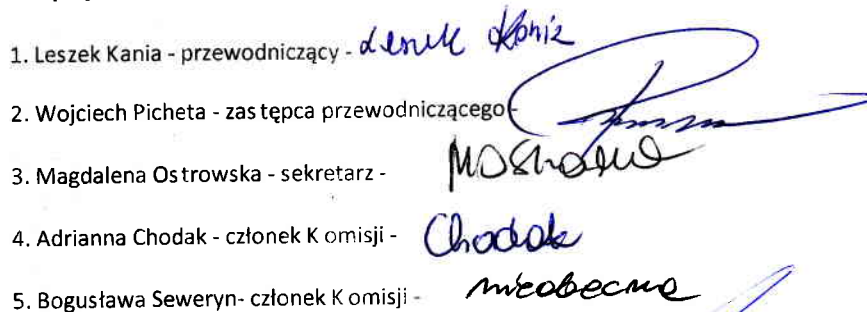 1. Leszek Kania - przewodniczący - Leszek Kania
2. Wojciech Picheta - zastępca przewodniczącego -
3. Magdalena Ostrowska - sekretarz - MOstrowska
4. Adrianna Chodak - członek Komisji - Chodak
5. Bogusława Seweryn- członek Komisji - nieobecna